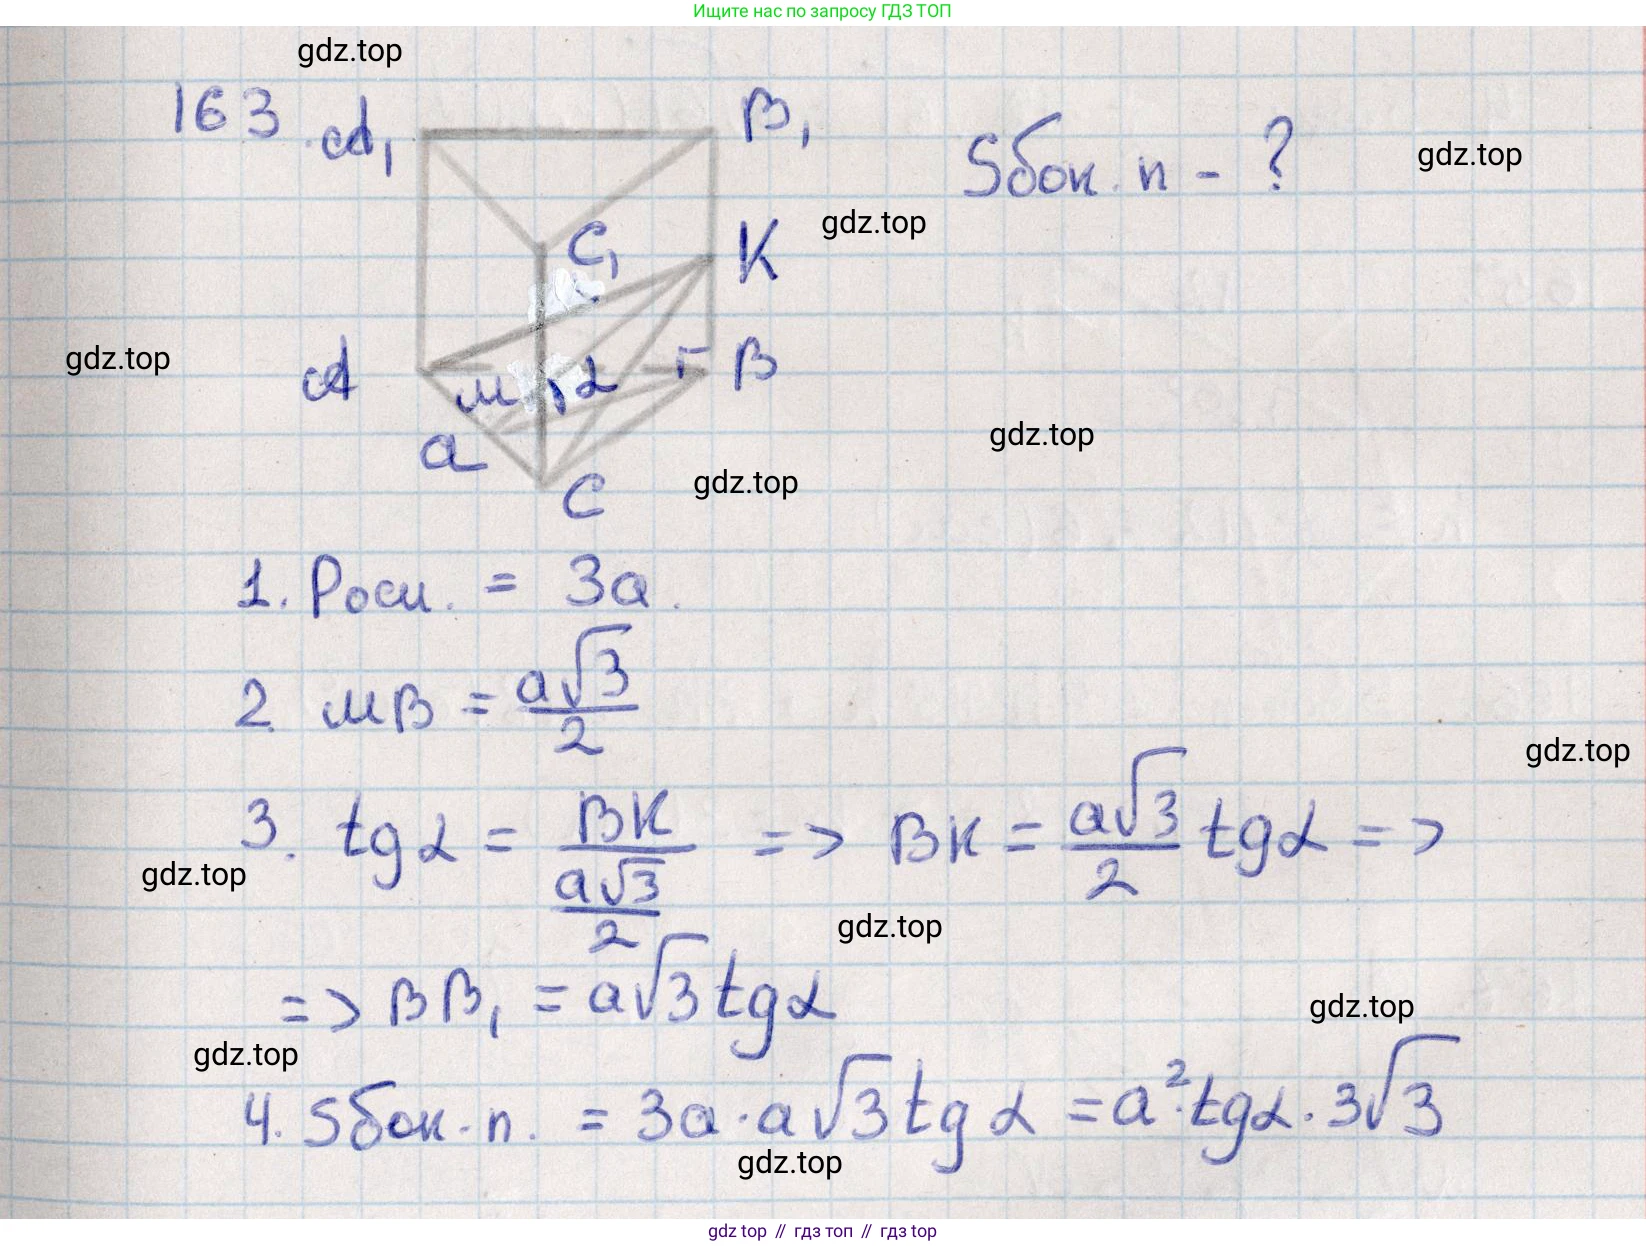 Ищите нас по запросу ГДЗ ТОП
gdz.top
163. A₁ B₁ Sбок. п - ?
gdz.top
C₁ K gdz.top
gdz.top A M α B
a gdz.top
C gdz.top
1. Pосн. = 3a.
2 MB = a√3/2
gdz.top
3. tgα = BK/(a√3/2) => BK = a√3/2 tgα =>
gdz.top
gdz.top
=> BB₁ = a√3 tgα
gdz.top
gdz.top
4. Sбок. п. = 3a · a√3 tg α = a² · tgα · 3√3
gdz.top
gdz top // гдз топ // гдз top